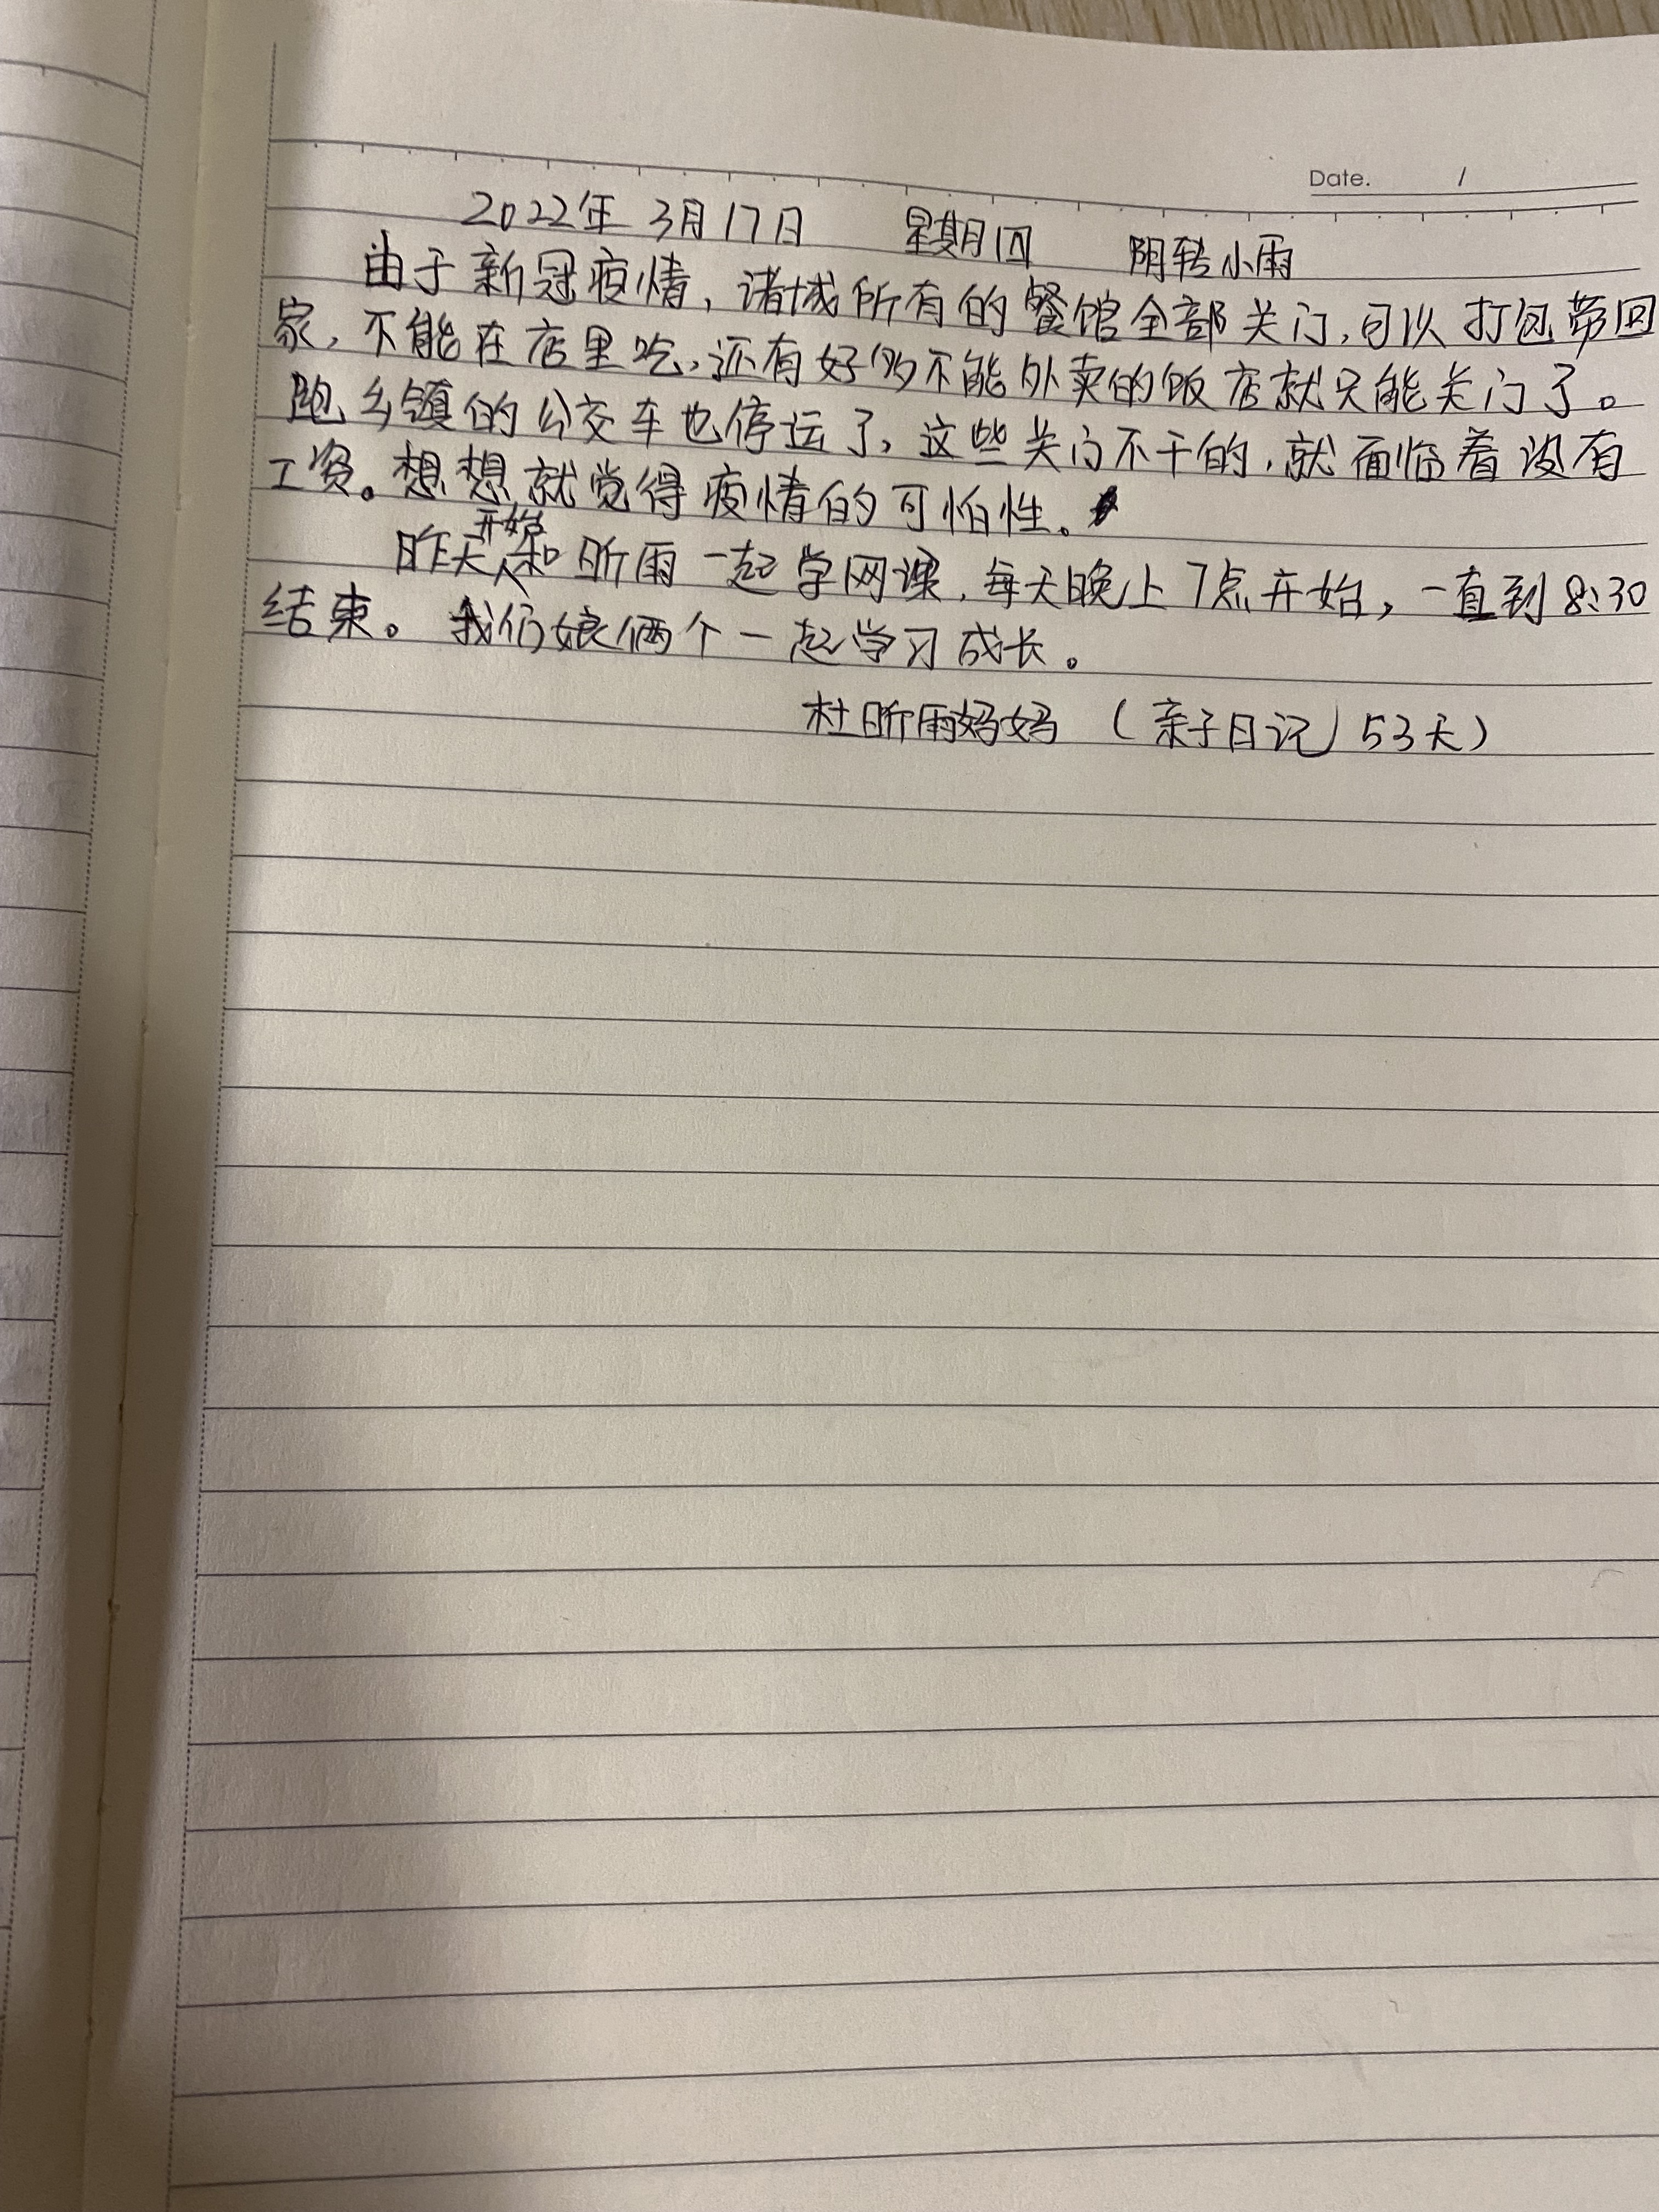 Date. /
2022年 3月17日 星期四 阴转小雨
由于新冠疫情，诸城所有的餐馆全部关门，可以打包带回
家，不能在店里吃，还有好多不能外卖的饭店就只能关门了。
跑乡镇的公交车也停运了，这些关门不干的，就面临着没有
工资。想想就觉得疫情的可怕性。
昨天开始和昕雨一起学网课，每天晚上7点开始，一直到8:30
结束。我们娘俩个一起学习成长。
杜昕雨妈妈（亲子日记）53天）